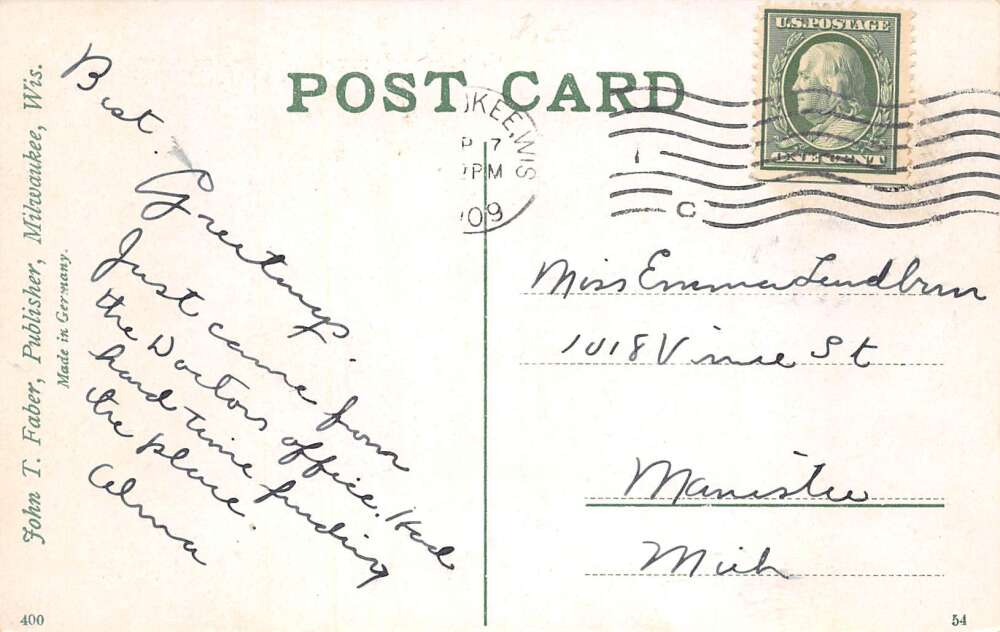 POST CARD
U.S. POSTAGE
KEE, WIS
P 7
PM
09
C
John T. Faber, Publisher, Milwaukee, Wis.
Made in Germany.
Best.
Greetings.
Just came from
the Doctors office. Had
hard time finding
the place.
Miss Emma
1018 Vine St
Manistee
Mich
400
54